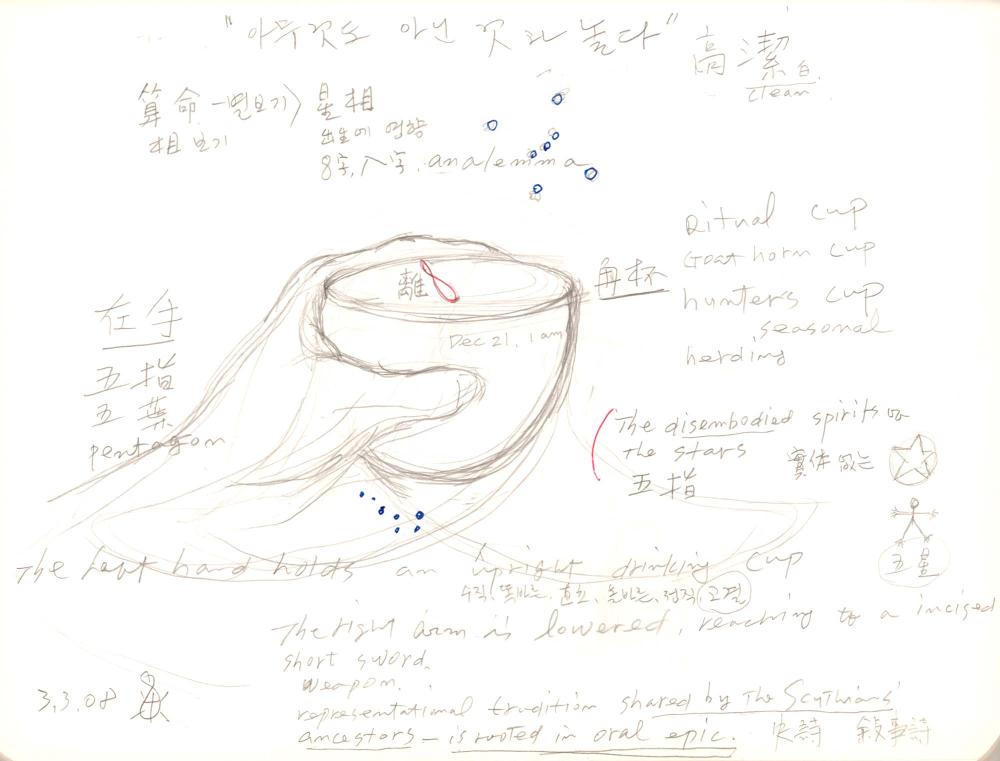 "아무것도 아닌 것과 놀다"
高潔白
clean
算命 - 별보기 > 星相
相 보기
出生에 영향
8字, 八字. analemma
Ritual cup
Goat horn cup
hunter's cup
seasonal
herding
離
角杯
Dec 21, 1 am
左手
五指
五葉
pentagon
The disembodied spirits or
the stars
實体 없는
五指
五星
The Left hand holds an upright drinking cup
수직, 똑바른, 직立, 올바른, 정직, 고결
The right arm is lowered, reaching to a incised
short sword.
weapon.
representational tradition shared by The Scythians'
ancestors – is rooted in oral epic. 史詩 敍事詩
3.3.08